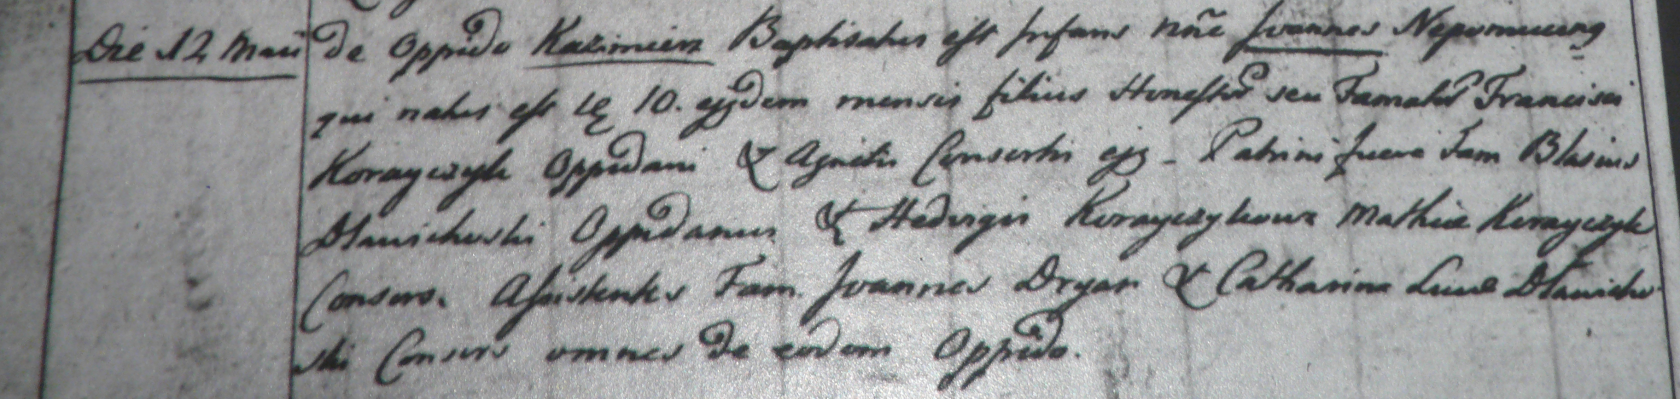 Die 12 Maii de Oppido Kazimierz Baptisatus est Infans nõe Joannes Nepomucenq
qui natus est 10. ejqdem mensis filius Honestor̃ seu Famator̃ Francisci
Korayczyk Oppidani & Agnetis Consortis ejq - Patrini fuere Fam Blasius
Dlawichowski Oppidanus & Hedvigis Korayczykowa Mathiæ Korayczyk
Consors. Assistentes Fam. Joannes Dryan & Catharina Lucæ Dlawicho
ski Consors omnes de eodem Oppido.